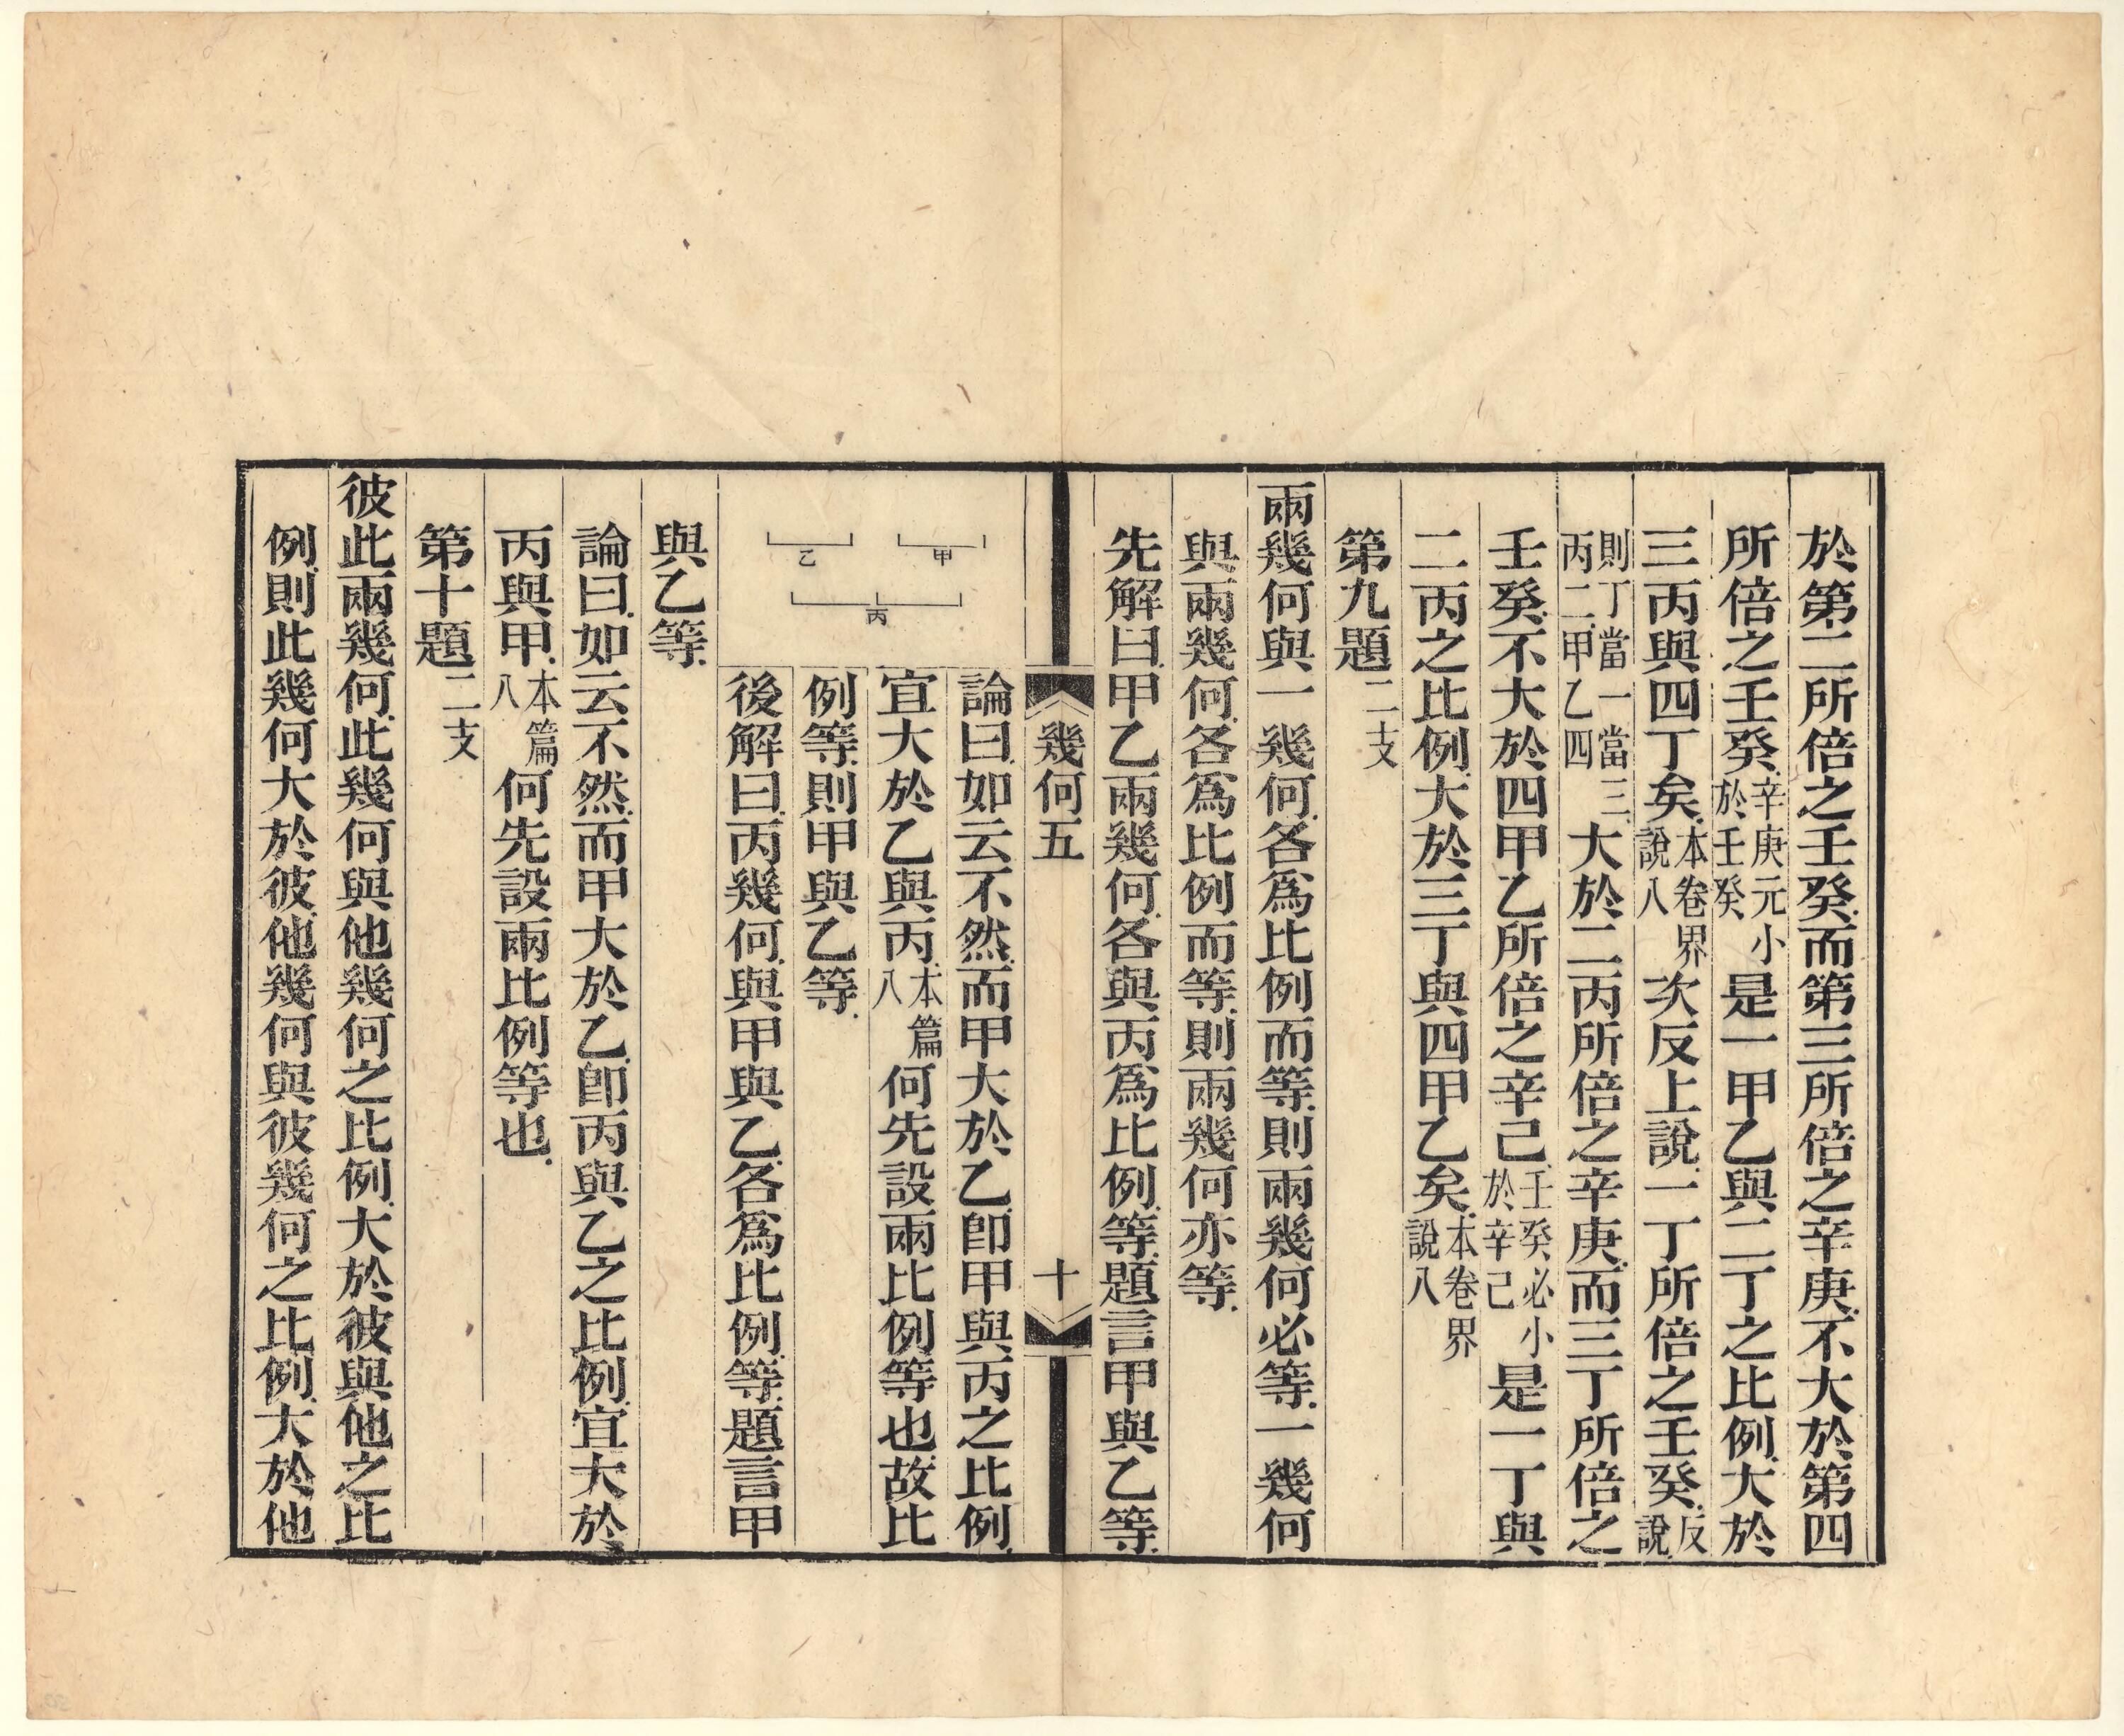 於第二所倍之壬癸.而第三所倍之辛庚.不大於第四
所倍之壬癸.辛庚元小於壬癸是一甲乙與二丁之比例.大於
三丙與四丁矣.本卷界說八次反上說.一丁所倍之壬癸.反說
則丁當一當三.丙二.甲乙四大於二丙所倍之辛庚.而三丁所倍之
壬癸.不大於四甲乙所倍之辛己.壬癸必小於辛己是一丁與
二丙之比例.大於三丁與四甲乙矣.本卷界說八
第九題二支
兩幾何與一幾何.各爲比例而等.則兩幾何必等.一幾何
與兩幾何.各爲比例而等.則兩幾何亦等.
先解曰.甲乙兩幾何.各與丙爲比例.等.題言甲與乙等.
幾何五
十
甲
乙
丙
論曰.如云不然.而甲大於乙.卽甲與丙之比例.
宜大於乙與丙.本篇八何先設兩比例等也.故比
例等.則甲與乙等.
後解曰.丙幾何.與甲與乙.各爲比例.等.題言甲
與乙等.
論曰.如云不然.而甲大於乙.卽丙與乙之比例.宜大於
丙與甲.本篇八何先設兩比例等也.
第十題二支
彼此兩幾何.此幾何與他幾何之比例.大於彼與他之比
例.則此幾何大於彼.他幾何與彼幾何之比例.大於他